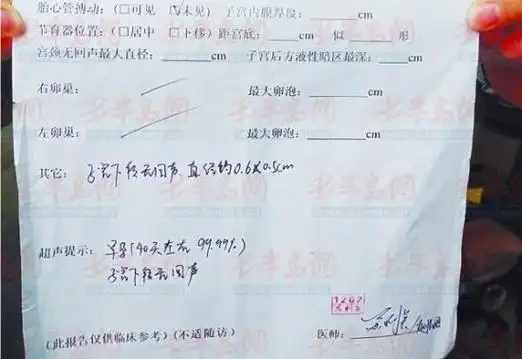 胎心管搏动：(□可见 ☑未见) 子宫内膜厚度：____cm
节育器位置：(□居中 □下移) 距宫底：____cm 似____形
宫颈无回声最大直径：____cm 子宫后方液性暗区最深：____cm
右卵巢： 最大卵泡：____cm
左卵巢： 最大卵泡：____cm
其它：子宫下段无回声，直径约0.6X0.5cm
超声提示：早孕(40天左右 99.99%)
子宫下段无回声
1262
(此报告仅供临床参考)(不适随访) 医师：
半岛网